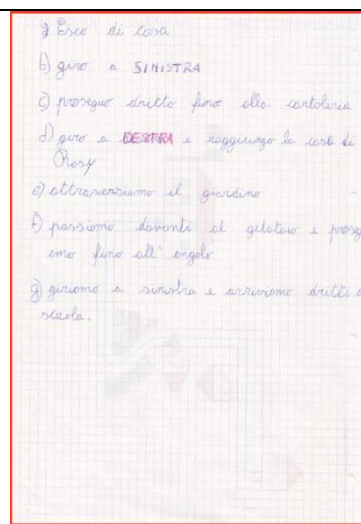 a) Esco di casa
b) giro a SINISTRA
c) proseguo dritto fino alla cartoleria
d) giro a DESTRA e raggiungo la casa di
Rosy
e) attraversiamo il giardino
f) passiamo davanti al gelataio e proseg
amo fino all' angolo
g) giriamo a sinistra e arriviamo dritti a
scuola.